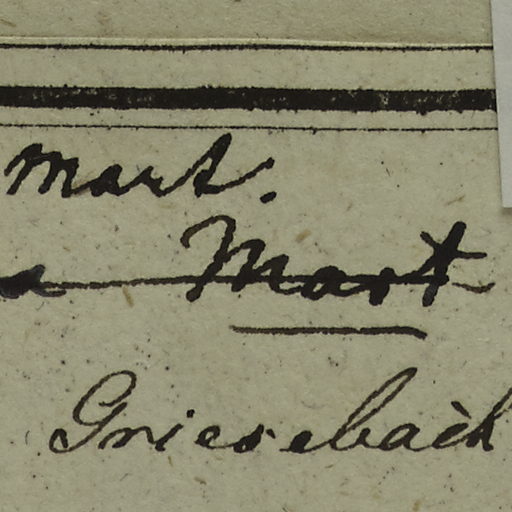 Mart.
a Mart
Griesebach